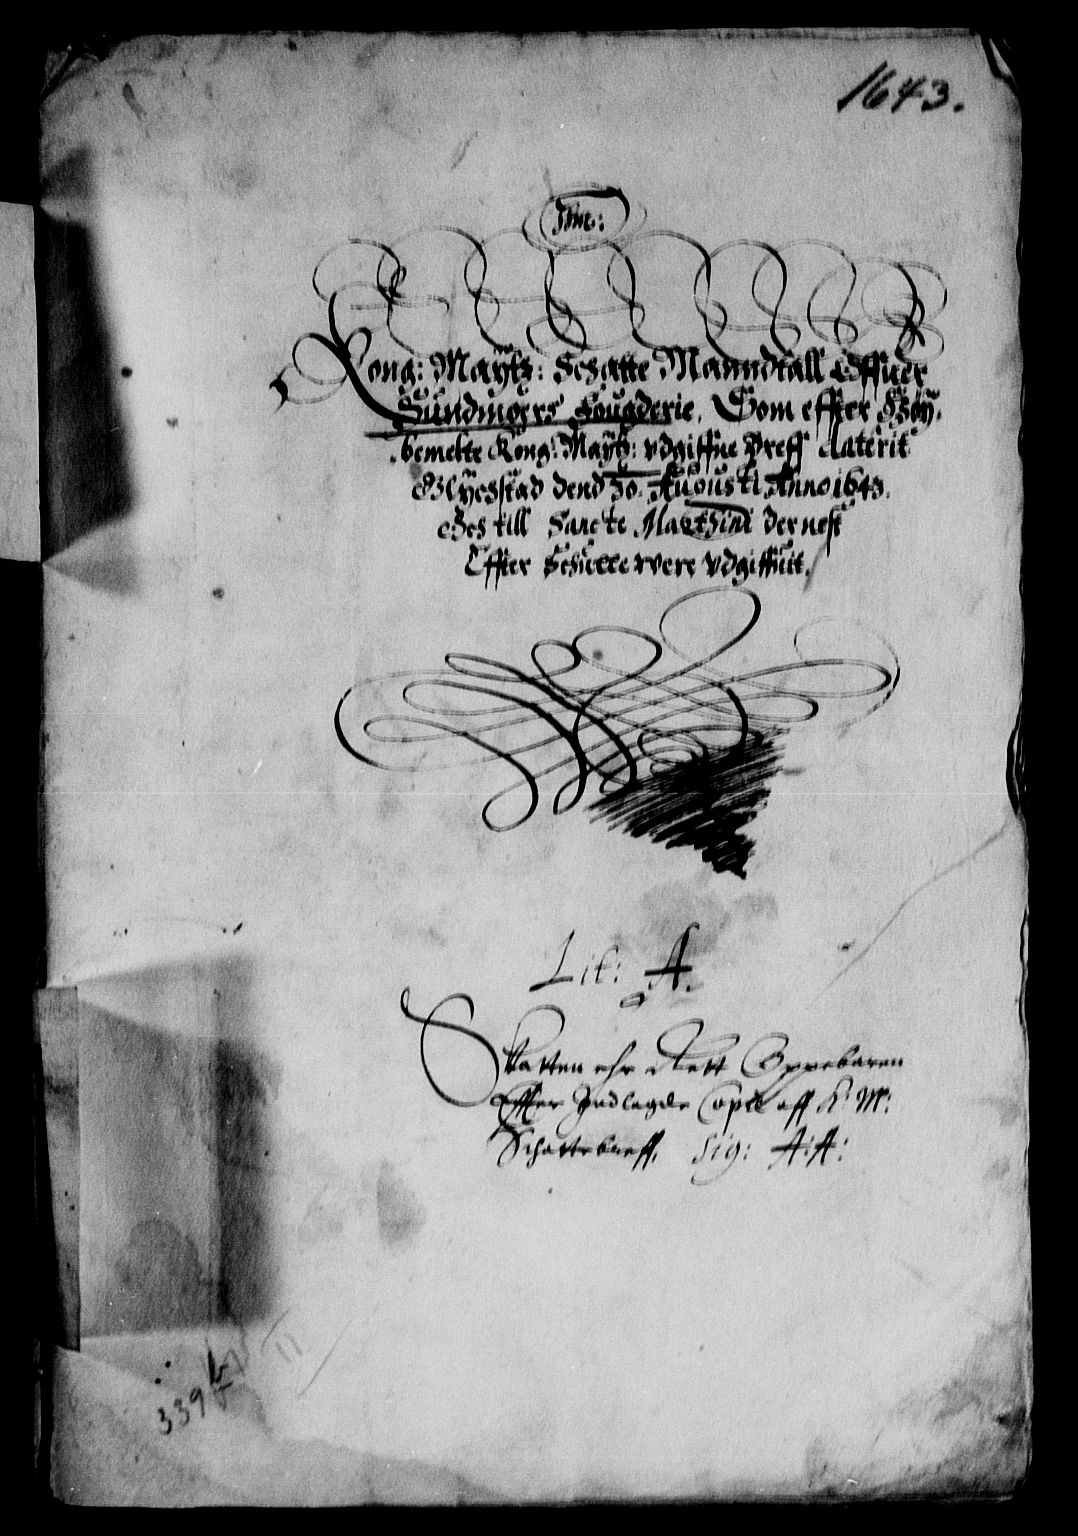 1643.
Kong: Maÿtz: Schatte Manndtall Offuer
Sundmøers Fougderie, Som effter Høy,
bemelte Kong: Maÿtz: vdgiffne Breff Daterit
Glÿcstad dend 30. Augusti Anno 1643.
Bes till Sancte Marthini der nest
Effter Schulle were vdgiffuit.
Lit: A.
Skatten ehr Rett Oppebaren
Effter Indlagde Copie aff K: M:
Schattebreff, Sig: A:A:
339